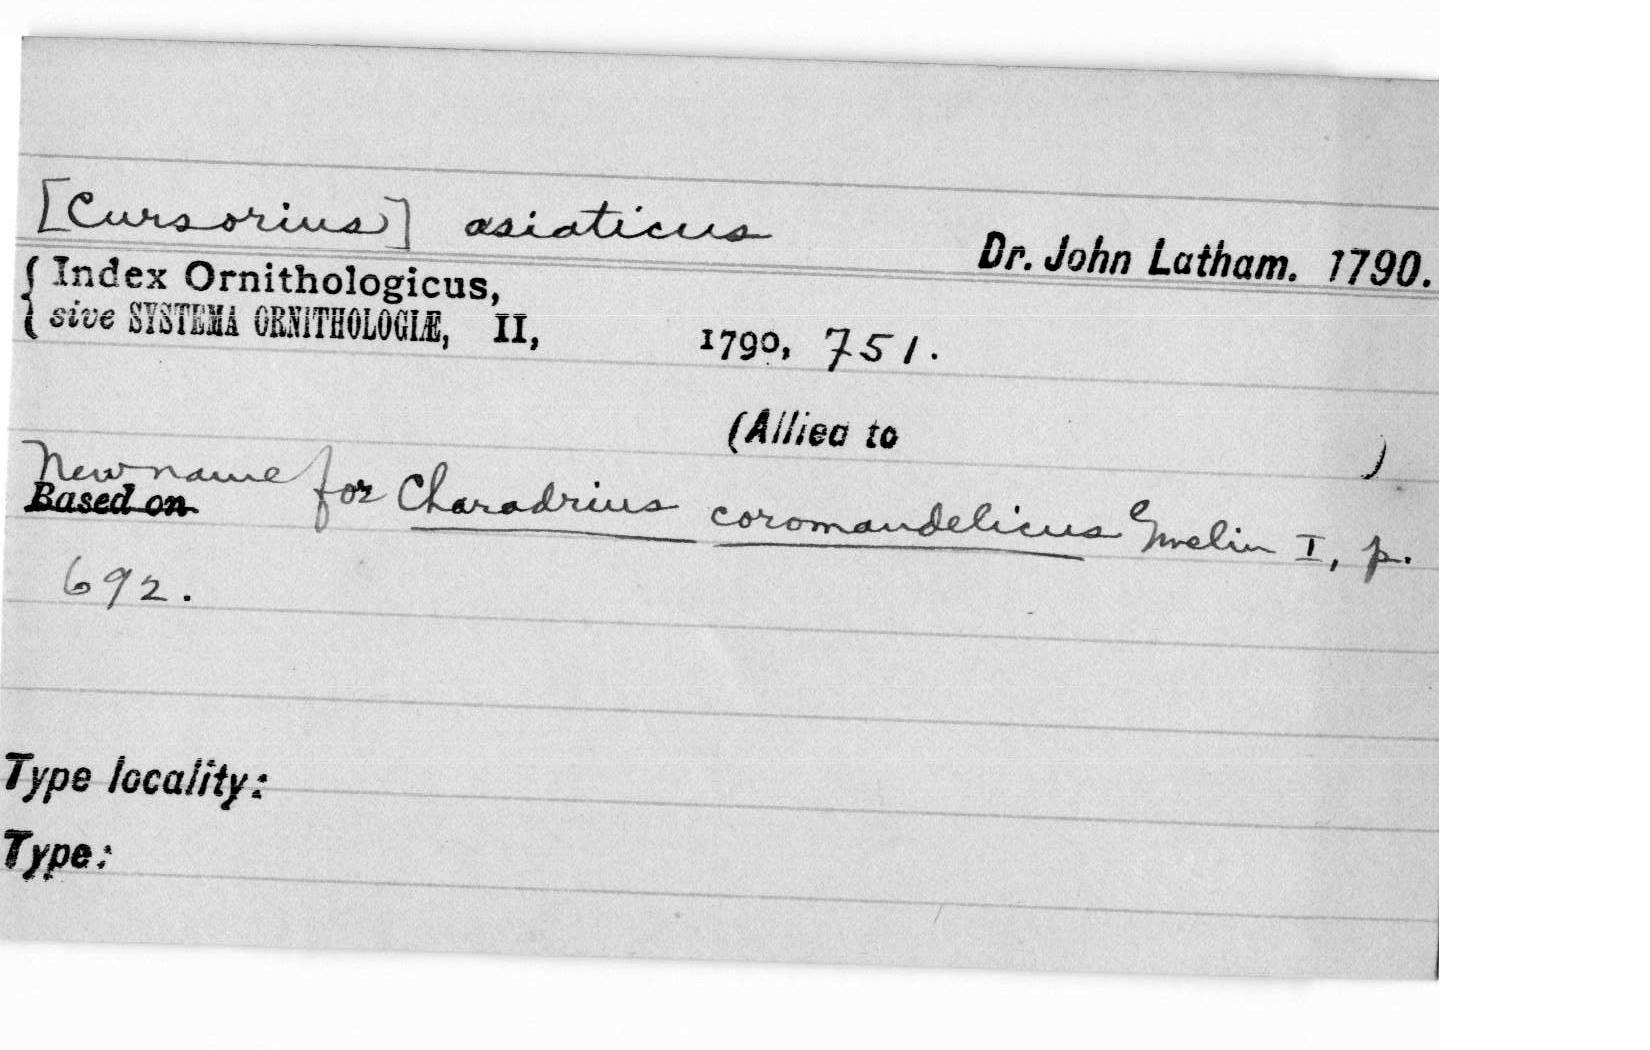 [Cursorius] asiaticus
Dr. John Latham. 1790.
Index Ornithologicus,
sive SYSTEMA ORNITHOLOGIÆ, II, 1790, 751.
(Allied to )
New name for Charadrius coromandelicus Gmelin I, p.
Based on
692.
Type locality:
Type: